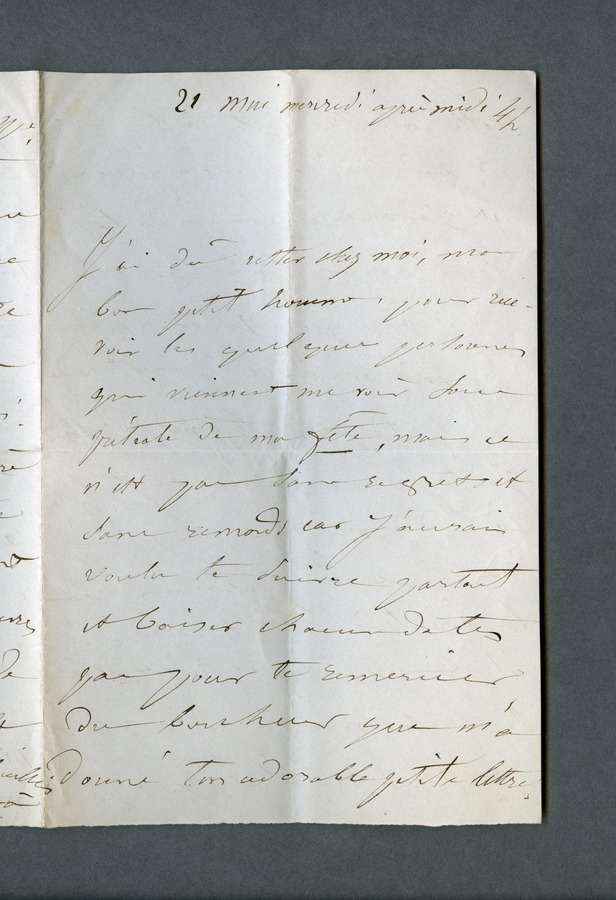 21 mai mercredi après midi 4h
J'ai dû rester chez moi, mon
bon petit homme, pour rece-
voir les quelques personnes
qui viennent me voir sous
prétexte de ma fête, mais ce
n'est pas sans regrets et
sans remords car j'aurais
voulu te suivre partout
et baiser chacun de tes
pas pour te remercier
du bonheur que m'a
donné ton adorable petite lettre.